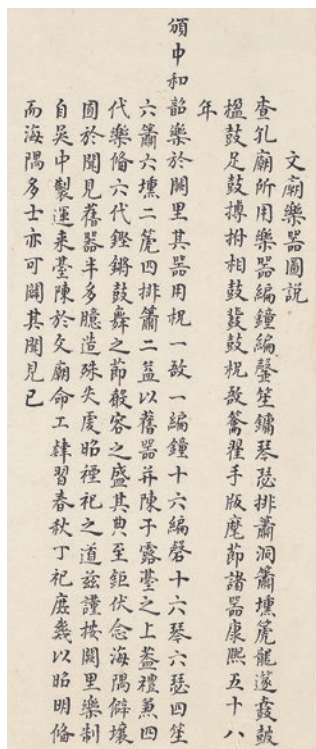 文廟樂器圖說
查孔廟所用樂器編鐘編磬笙鏞琴瑟排簫洞簫壎篪龍邃鼖鼓
楹鼓足鼓搏拊相鼓鼗鼓柷敔籥翟手版麾節諸器康熙五十八
年
頒中和韶樂於闕里其器用柷一敔一編鐘十六編磬十六琴六瑟四笙
六簫六壎二篪四排簫二益以舊器并陳于露臺之上蓋禮兼四
代樂偹六代鏗鏘鼓舞之節殽容之盛其典至鉅伏念海隅僻壤
囿於聞見舊器半多臆造殊失虔昭禋祀之道茲謹按闕里樂制
自吳中製運來臺陳於文廟命工肄習春秋丁祀庶幾以昭明偹
而海隅多士亦可闢其聞見已